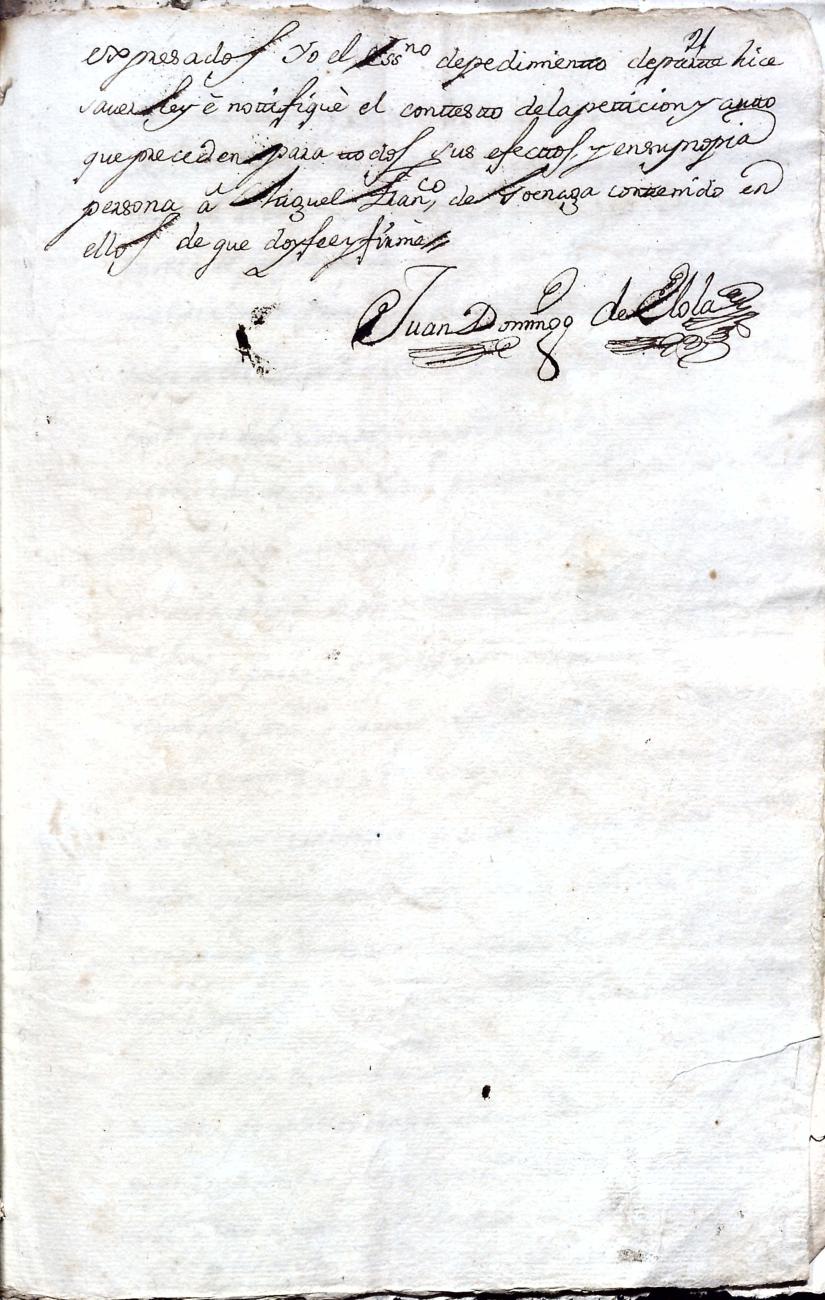 21
expresados Yo el Essno depedimiento departe hice
saver ley è nottifiquè el contesto delapetticion y autto
que preceden para ttodos sus efecttos, y ensupropia
persona â Miguel Franco, de contenido en
ellos de que doyfee y firmè
Juan Domingo de Elola